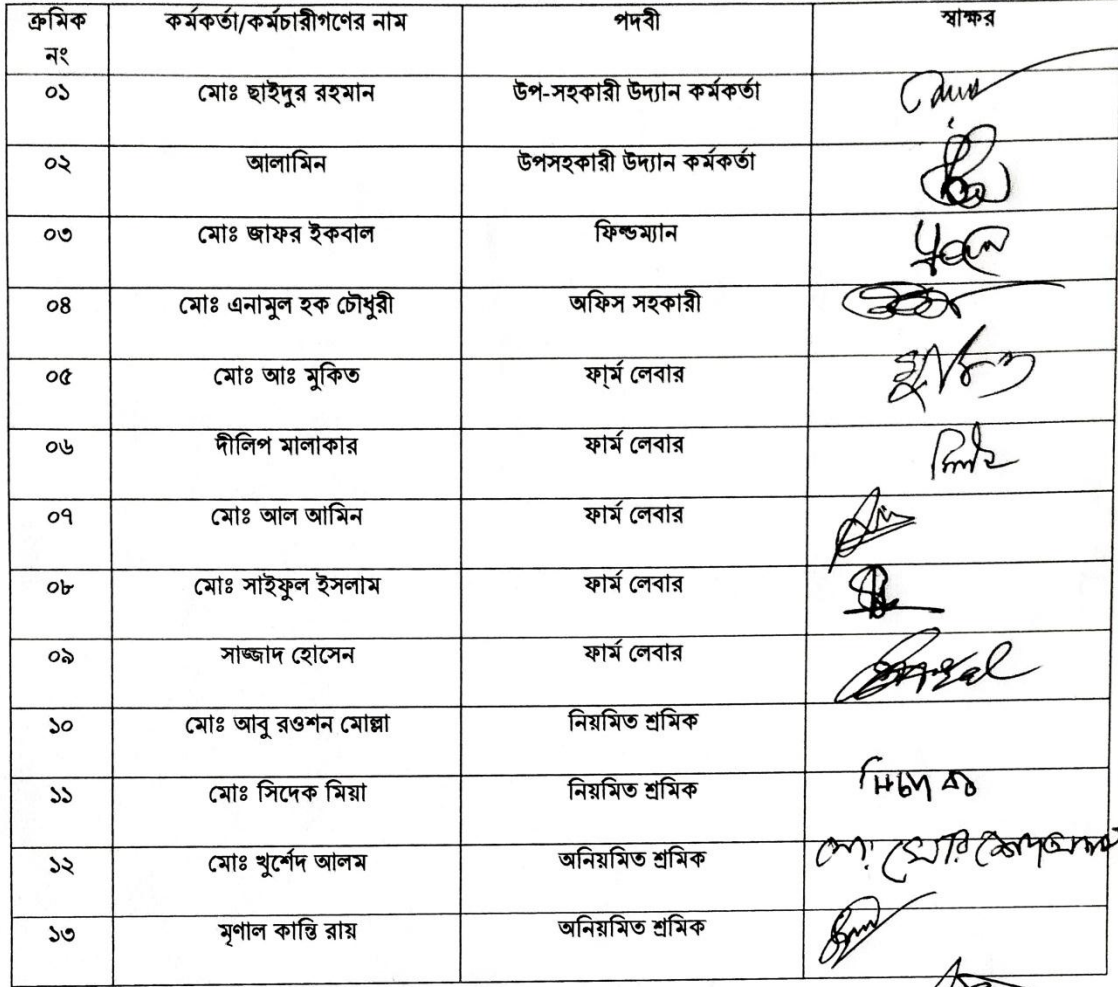 ক্রমিক নং কর্মকর্তা/কর্মচারীগণের নাম পদবী স্বাক্ষর
০১ মোঃ ছাইদুর রহমান উপ-সহকারী উদ্যান কর্মকর্তা
০২ আলামিন উপসহকারী উদ্যান কর্মকর্তা
০৩ মোঃ জাফর ইকবাল ফিল্ডম্যান
০৪ মোঃ এনামুল হক চৌধুরী অফিস সহকারী
০৫ মোঃ আঃ মুকিত ফা্র্ম লেবার
০৬ দীলিপ মালাকার ফার্ম লেবার
০৭ মোঃ আল আমিন ফার্ম লেবার
০৮ মোঃ সাইফুল ইসলাম ফার্ম লেবার
০৯ সাজ্জাদ হোসেন ফার্ম লেবার
১০ মোঃ আবু রওশন মোল্লা নিয়মিত শ্রমিক
১১ মোঃ সিদেক মিয়া নিয়মিত শ্রমিক
১২ মোঃ খুর্শেদ আলম অনিয়মিত শ্রমিক
১৩ মৃণাল কান্তি রায় অনিয়মিত শ্রমিক